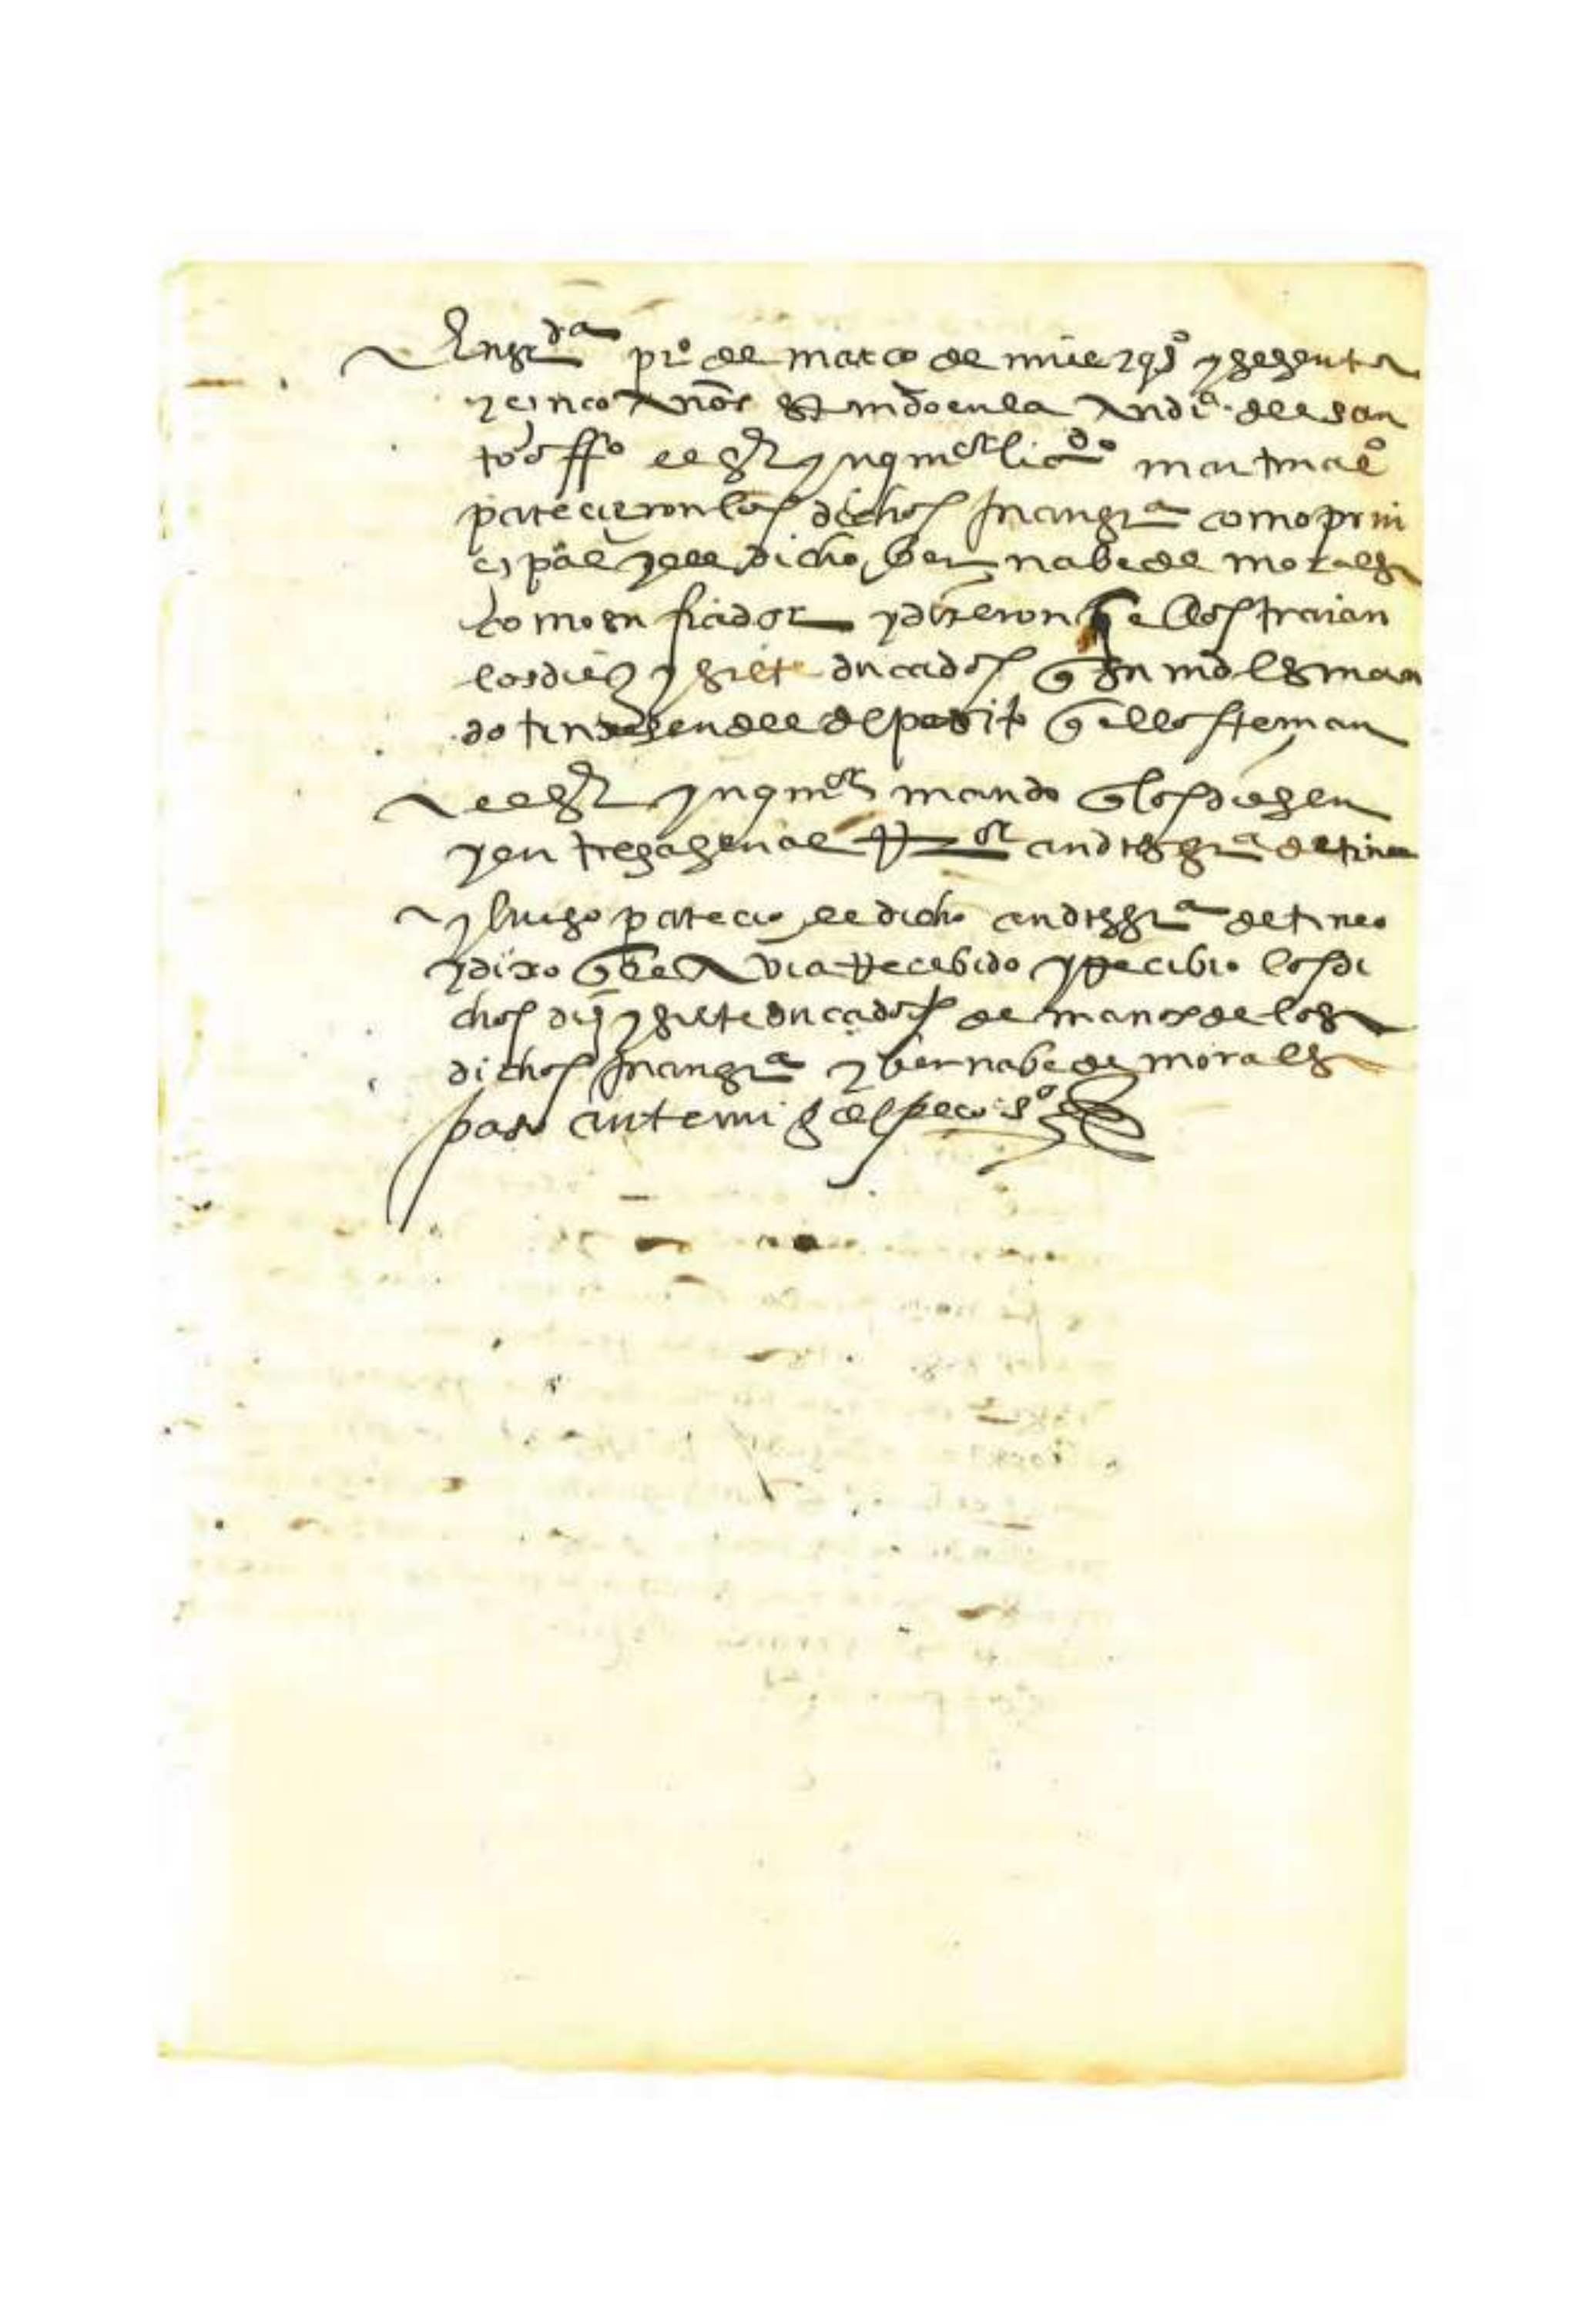 En gr^da pr^o de março de mill e qs^o y sesenta
y cinco años estando en la audi^a del san
to offi^o el s^r ynqui^or lic^do martin al^o
parecieron los dichos Juan gr^a como prin
cipal y el dicho bernabe de morales
como su fiador y dixeron q ellos traian
los diez y siete ducados q su md les man
do truxesen del deposito q ellos tenian
el s^r ynqui^or mando q los diesen
y entregasen al rr^or andres gr^a de tineo
y luego parecio el dicho andres gr^a de tineo
y dixo q el avia rrecebido y rrecibio los di
chos diez y siete ducados de manos de los
dichos Juan gr^a y bernabe de morales
paso ante mi